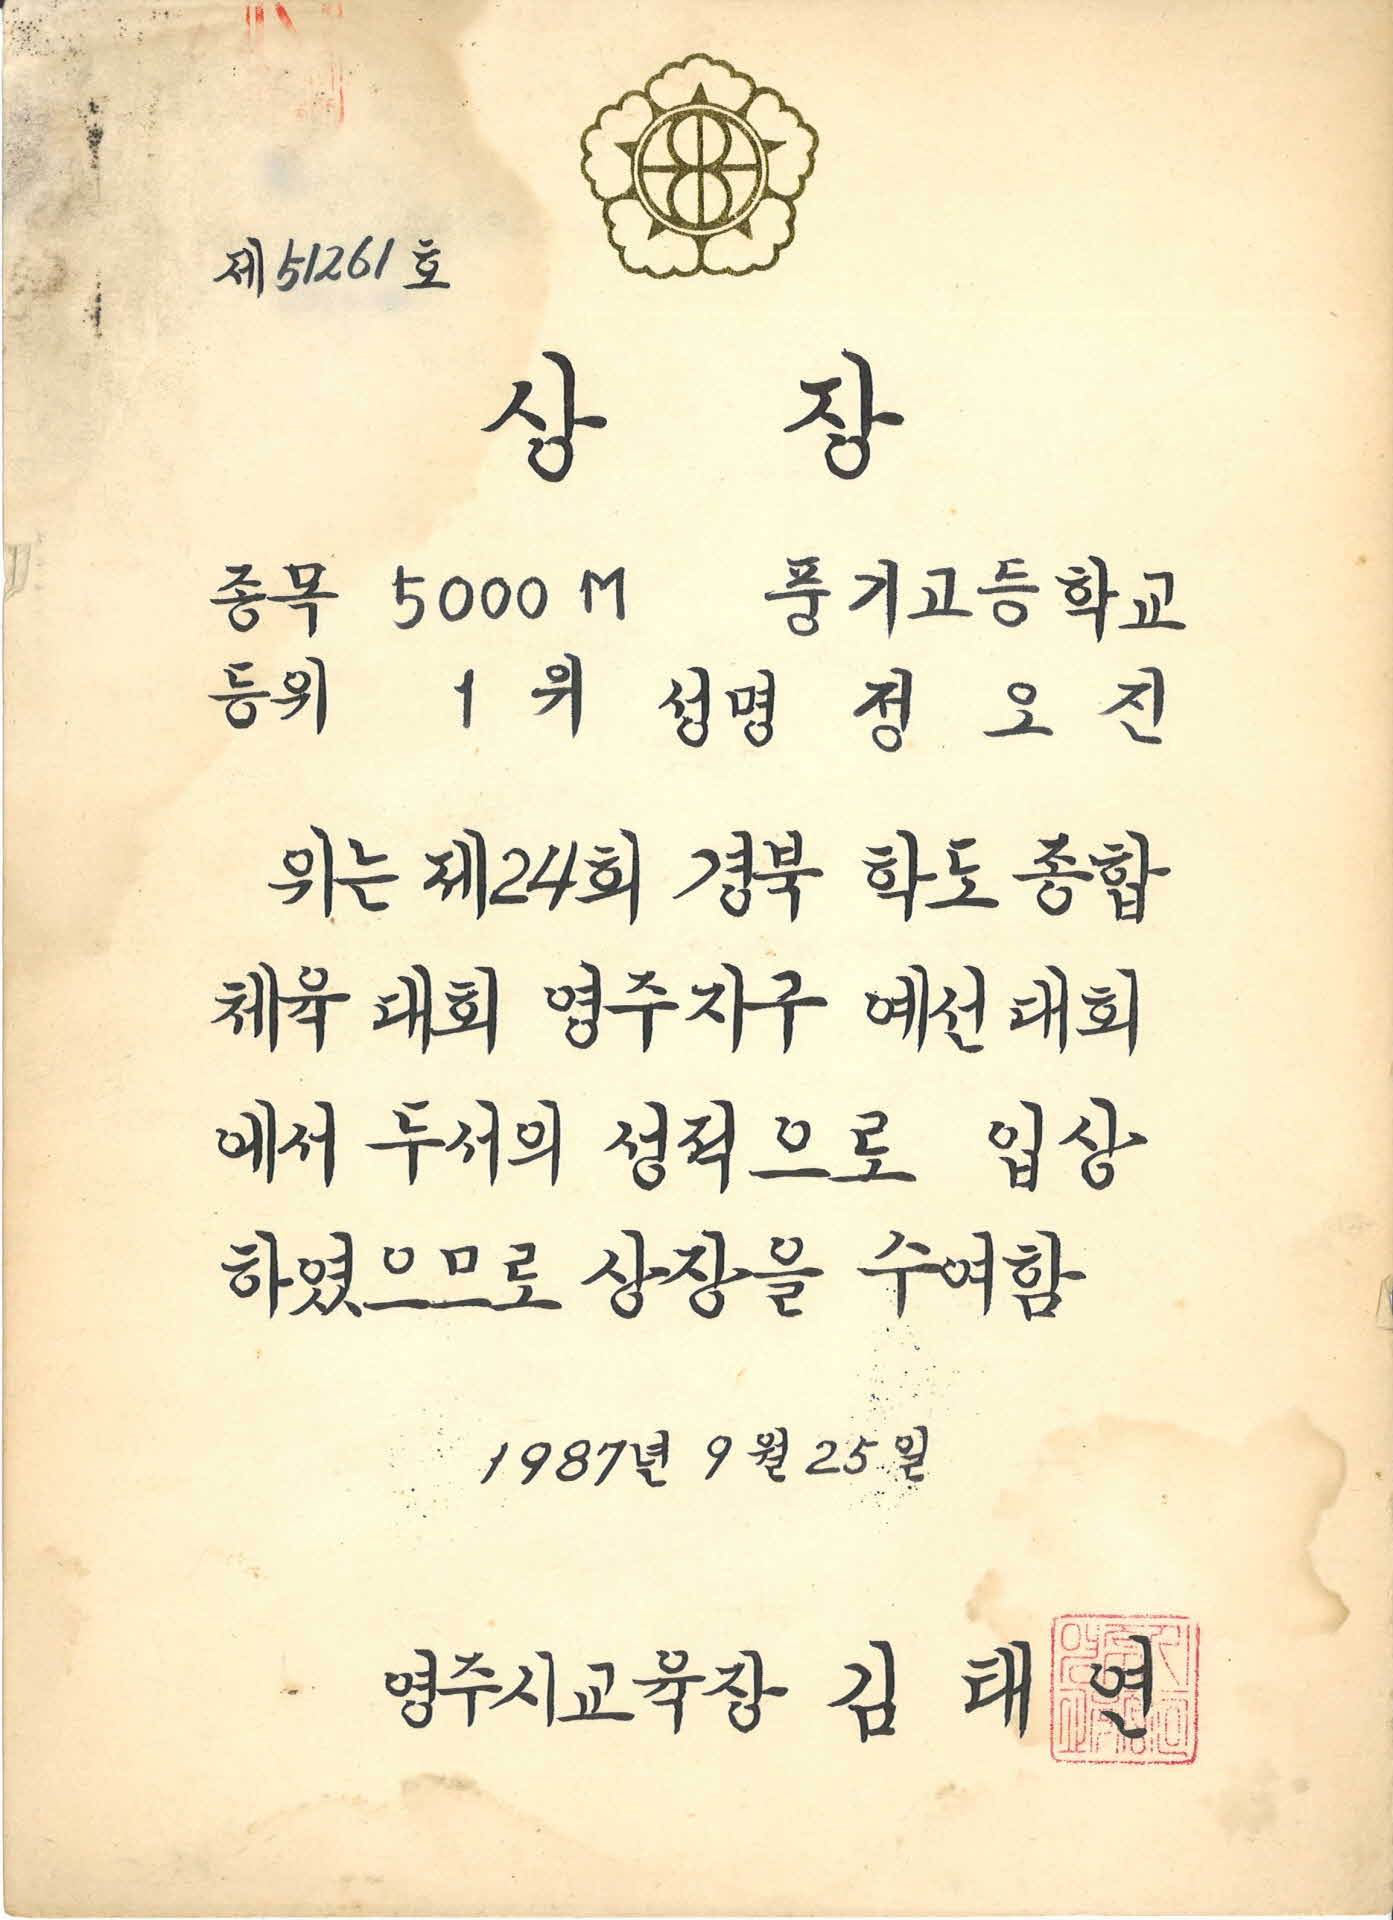 제 51261 호
상 장
종목 5000 M 풍기고등학교
등위 1 위 성명 정 오 진
위는 제24회 경북 학도 종합
체육 대회 영주지구 예선대회
에서 두서의 성적으로 입상
하였으므로 상장을 수여함
1987년 9월 25일
영주시교육장 김 태 연